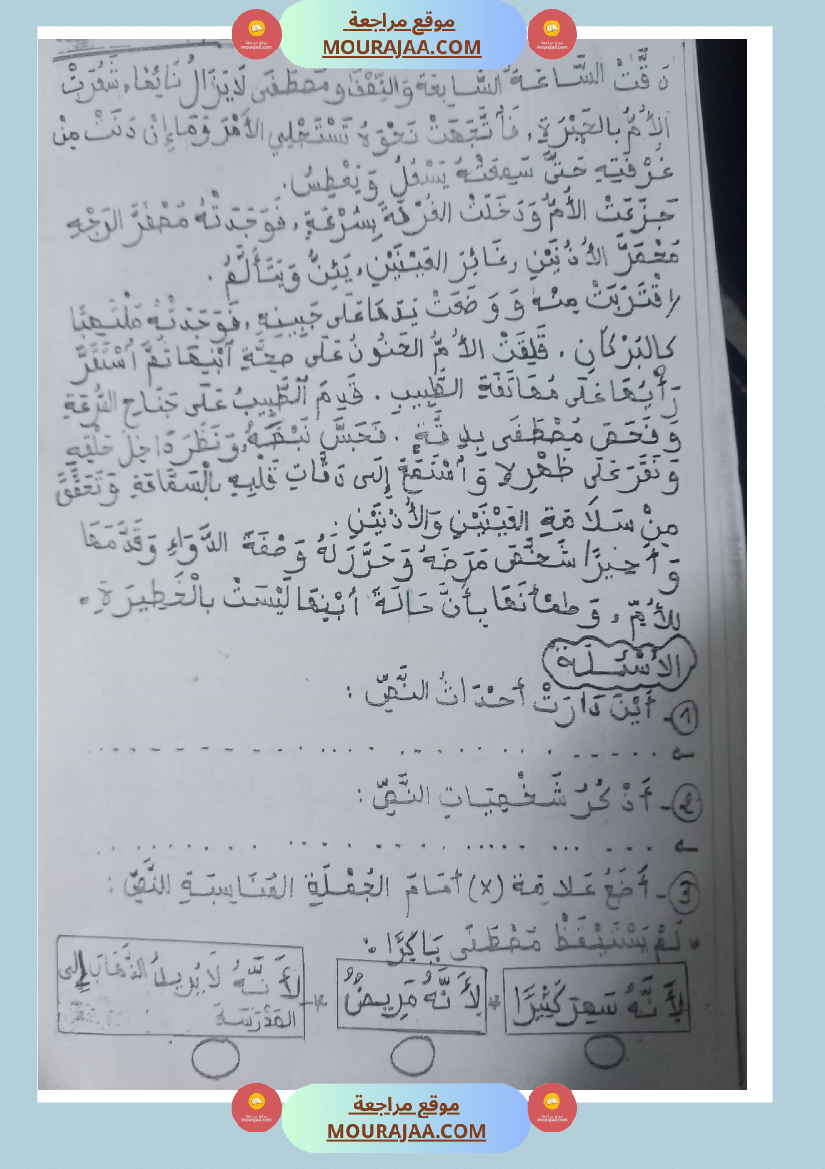 موقع مراجعة
MOURAJAA.COM
دَقَّتْ السَّاعَةُ السَّابِعَةُ وَالنِّصْفُ وَمُصْطَفَى لَا يَزَالُ نَائِمًا، شَعُرَتْ
الأُمُّ بِالحَيْرَةِ، فَاتَّجَهَتْ نَحْوَهُ تَسْتَجْلِي الأَمْرَ وَمَا إِنْ دَنَتْ مِنْ
غُرْفَتِهِ حَتَّى سَمِعَتْهُ يَسْعُلُ وَيَعْطِسُ.
جَزِعَتْ الأُمُّ وَدَخَلَتْ الغُرْفَةَ بِسُرْعَةٍ، فَوَجَدَتْهُ مُصْفَرَّ الوَجْهِ
مُحْمَرَّ الأُذُنَيْنِ، غَائِرَ العَيْنَيْنِ، يَئِنُّ وَيَتَأَلَّمُ.
اِقْتَرَبَتْ مِنْهُ وَ وَضَعَتْ يَدَهَا عَلَى جَبِينِهِ، فَوَجَدَتْهُ مُلْتَهِبًا
كَالبُرْكَانِ. قَلِقَتْ الأُمُّ الحَنُونُ عَلَى صِحَّةِ ابْنِهَا ثُمَّ اسْتَقَرَّ
رَأْيُهَا عَلَى مُهَاتَفَةِ الطَّبِيبِ. قَدِمَ الطَّبِيبُ عَلَى جَنَاحِ السُّرْعَةِ
وَفَحَصَ مُصْطَفَى بِدِقَّةٍ. فَجَسَّ نَبْضَهُ، وَنَظَرَ دَاخِلَ حَلْقِهِ
وَنَقَرَ عَلَى ظَهْرِهِ وَاسْتَمَعَ إِلَى دَقَّاتِ قَلْبِهِ بِالسَّمَّاعَةِ وَتَحَقَّقَ
مِنْ سَلَامَةِ العَيْنَيْنِ وَالأُذُنَيْنِ.
وَأَخِيرًا شَخَّصَ مَرَضَهُ وَحَرَّرَ لَهُ وَصْفَةَ الدَّوَاءِ وَقَدَّمَهَا
لِلأُمِّ، وَطَمْأَنَهَا بِأَنَّ حَالَةَ ابْنِهَا لَيْسَتْ بِالْخَطِيرَةِ.
الأسْئِلَة
1- أَيْنَ دَارَتْ أَحْدَاثُ النَّصِّ :
2- أَذْكُرُ شَخْصِيَاتِ النَّصِّ :
3- أَضَعُ عَلَامَة (x) أَمَامَ الجُمْلَةِ المُنَاسِبَةِ لِلنَّصِّ :
• لَمْ يَسْتَيْقِظْ مُصْطَفَى بَاكِرًا :
لِأَنَّهُ سَهِرَ كَثِيرًا * لِأَنَّهُ مَرِيضٌ * لِأَنَّهُ لَا يُرِيدُ الذَّهَابَ إِلَى
المَدْرَسَةِ
موقع مراجعة
MOURAJAA.COM